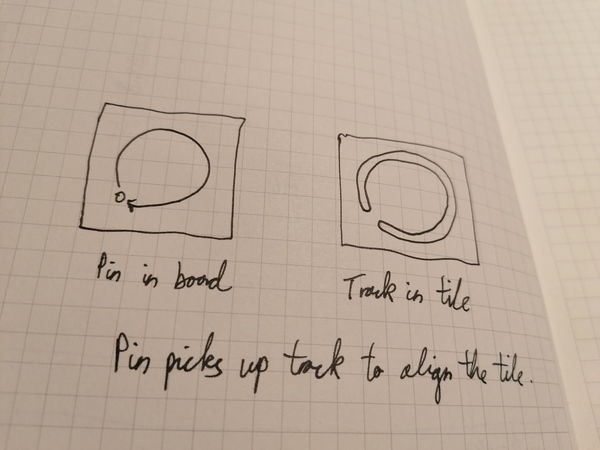 Pin in board
Track in tile
Pin picks up track to align the tile.